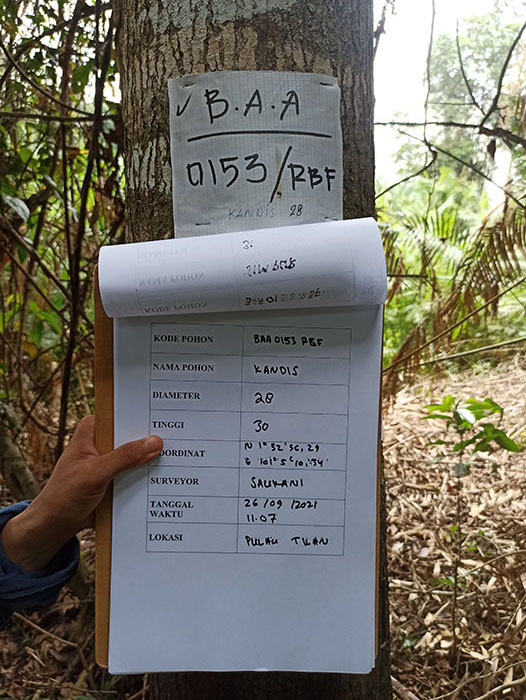 ✓ B.A.A
0153/RBF
KANDIS 28
KODE POHON BAA 0153 RBF
NAMA POHON KANDIS
DIAMETER 28
TINGGI 30
OORDINAT N 1° 52' 56, 29
E 101° 5' 10, 34
SURVEYOR SAUKANI
TANGGAL WAKTU 26/09/2021
11.07
LOKASI PULAU TILAN